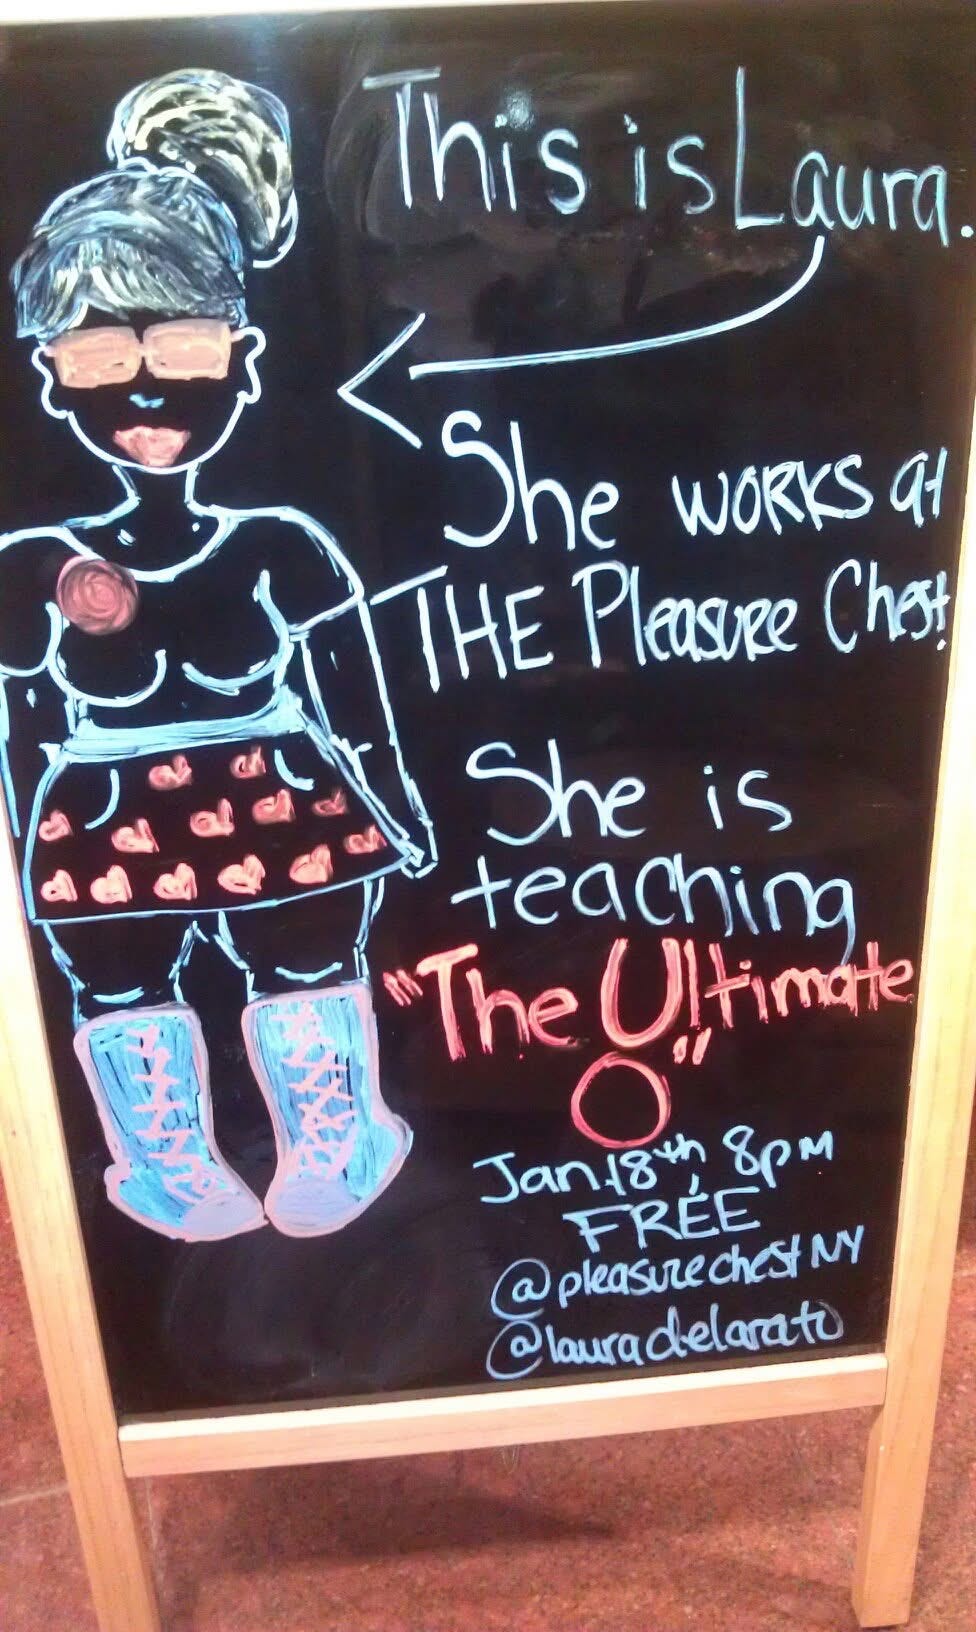 This is Laura.
She works at
THE Pleasure Chest!
She is
teaching
"The Ultimate
O"
Jan. 18th, 8pm
FREE
@pleasurechestNY
@lauradelarato